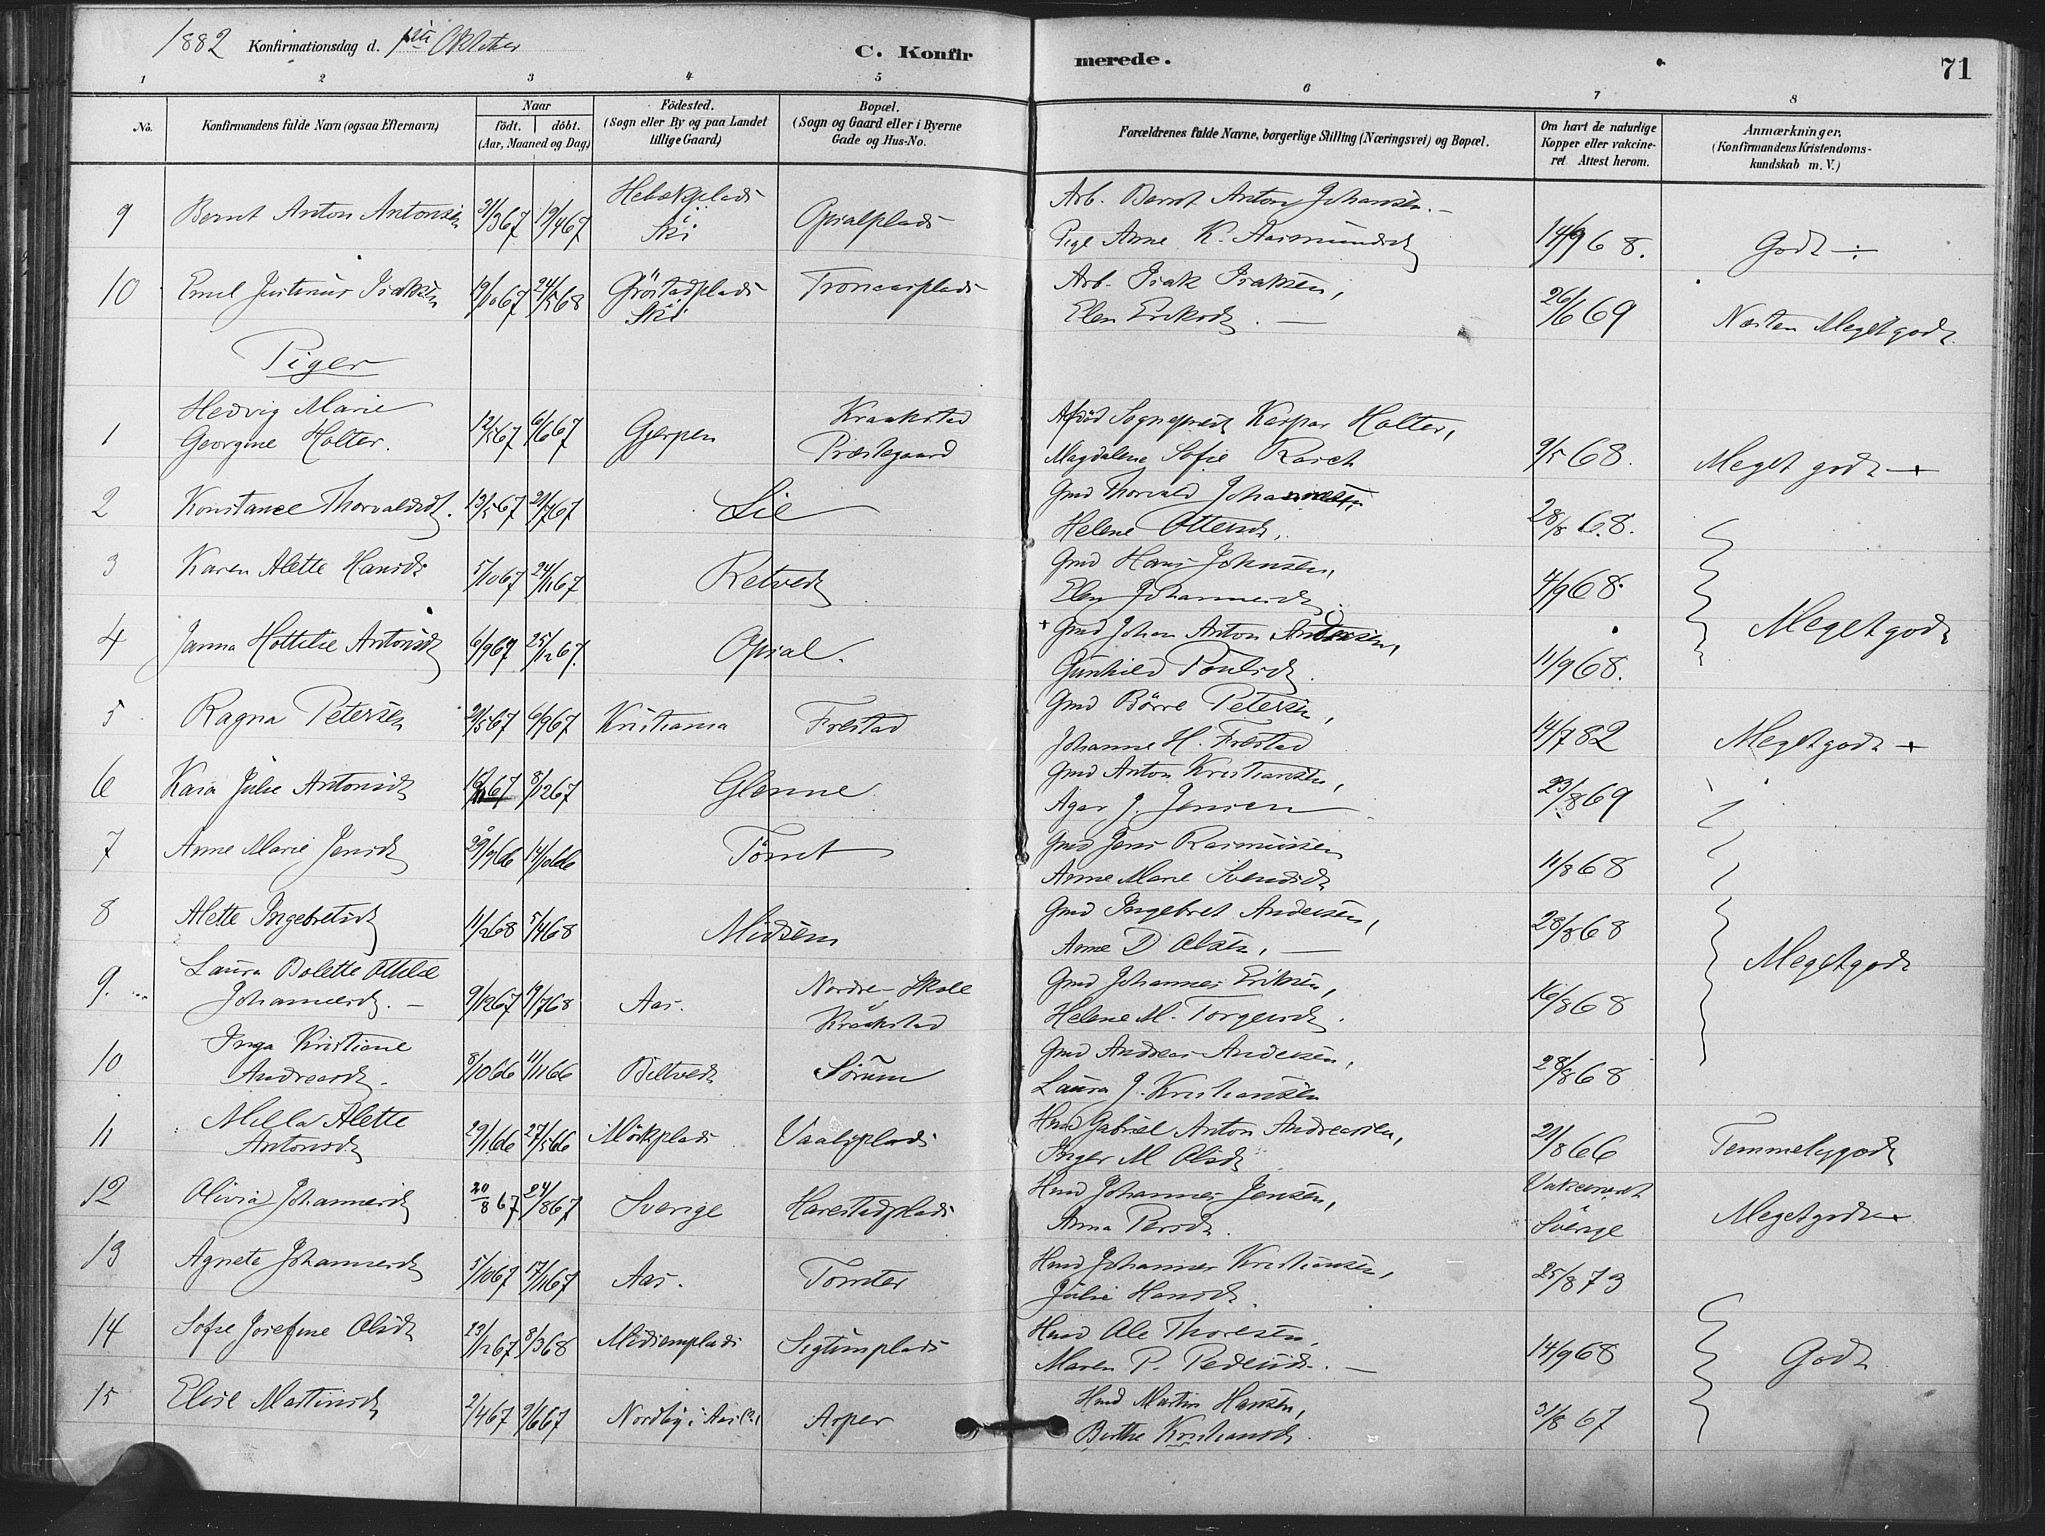 1882 Konfirmationsdag d. 1ste Oktober
C. Konfirmerede.
71
1 2 3 4 5 6 7 8
No.
Konfirmandens fulde Navn (ogsaa Efternavn)
Naar
födt. döbt.
(Aar, Maaned og Dag)
Födested.
(Sogn eller By og paa Landet
tillige Gaard)
Bopæl.
(Sogn og Gaard eller i Byerne
Gade og Hus-No.
Forældrenes fulde Navne, borgerlige Stilling (Næringsvei) og Bopæl.
Om havt de naturlige
Kopper eller vakcine-
ret Attest herom.
Anmærkninger.
(Konfirmandens Kristendoms-
kundskab m. V.)
9 Bernt Anton Antonsen 21/3 67 19/4 67 Hebækplads i Ski Opsalplads
Arb. Bernt Anton Johansen. –
Pige Anne K. Aasmundsdt 14/9 68. Godt ÷
10 Emil Justinus Isaksen 19/10 67 24/5 68 Gröstadplads Ski Troneesplads
Arb. Isak Isaksen,
Elen Eriksdt. – 26/6 69 Næsten Meget godt
Piger
1 Hedvig Marie
Georgine Holter. 12/5 67 6/6 67 Gjerpen Kraakstad Præstegaard
Afdöd Sogneprest Kaspar Holter,
Magdalena Sofie Rasch 9/5 68. Meget godt +
2 Konstance Thorvaldsdt. 13/5 67 21/7 67 Lie
Gmd Thorvald Johannesen,
Helene Ottersdt, 28/8 68.
3 Karen Alette Hansdt 5/10 67 24/11 67 Retvedt
Gmd Hans Johnsen,
Elen Johannesdt 4/9 68.
4 Janna Hottilie Antonsdt 6/9 67 25/12 67. Opsal.
+ Gmd Johan Anton Andersen,
Gunhild Poulsdt. 11/9 68. Meget godt
5 Ragna Petersen 21/5 67 6/9 67 Kristiania Frestad
Gmd Börre Petersen,
Johanne H. Frestad 14/7 82 Meget godt +
6 Kaia Julie Antonsdt 8/12 67 Glenne.
Gmd Anton Kristiansen,
Agar J. Jensen 23/8 69
7 Anne Marie Jensdt 29/7 66 14/10 66 Tomt
Gmd Jens Rasmussen
Anne Marie Svendsdt 11/8 68
8 Alette Ingebretsdt 11/2 68 5/4 68 Midsem
Gmd Ingebret Andersen,
Anne D Olsen, – 28/8 68
9. Laura Bolette Ottilie
Johannesdt. – 9/12 67 9/7 68 Aas. Nordre Skole Kraakstad
Gmd Johannes Eriksen,
Helene M. Torgersdt. 16/8 68 Meget godt
10 Inga Kristiane
Andreasdt. 8/10 66 11/11 66 Biltvedt Sörum
Gmd Andreas Andersen,
Laura J. Kristiansen 28/8 68
11 Milla Alette
Antonsdt 29/1 66 27/5 66 Mörkplads Vaalsplads
Hmd Gabriel Anton Andreassen,
Inger M Olsdt 21/8 66 Temmelig godt
12 Olivia Johannesdt 20/8 67 24/8 67 Sverige Harestadplads
Hmd Johannes Jensen,
Anna Persdt. Vakcineret Sverige Meget godt +
13 Agnete Johannesdt 5/10 67 17/11 67 Aas. Tomter
Hmd Johannes Kristiansen,
Julie Hansdt. 25/8 73
14 Sofie Josefine Olsdt 23/12 67 8/3 68 Midsemplads Sigtunplads
Hmd Ole Thoresen,
Maren P. Pedersdt. – 14/9 68 Godt
15 Elise Martinsdt 2/4 67 9/6 67 Nordby i Aas Asper
Hmd Martin Hansen,
Berthe Kristiansdt. 31/8 67